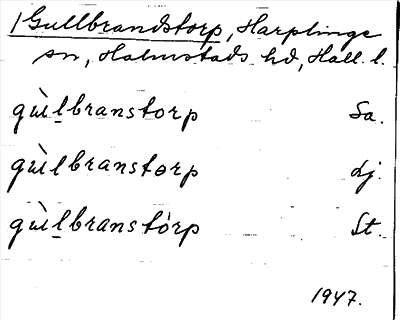 /Gullbrandstorp, Harplinge
sn, Halmstads hd, Hall. l.
gùl̲branstorp Sa.
gùlbranstorp Lj.
gùl̲branstórp St.
1947.